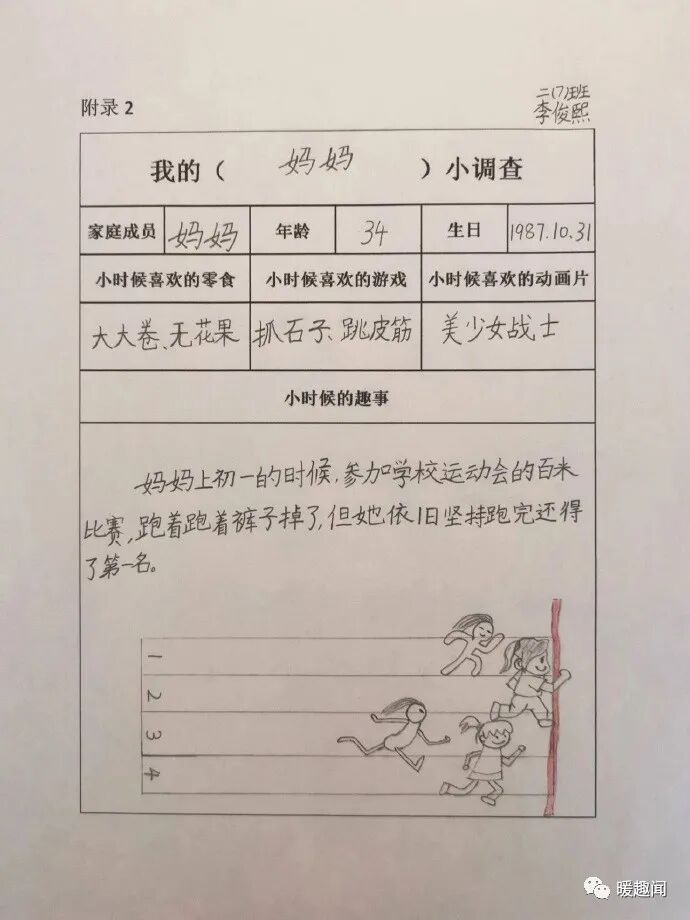 附录 2
二(7)班
李俊熙
我的（ 妈妈 ）小调查
家庭成员 妈妈 年龄 34 生日 1987.10.31
小时候喜欢的零食 小时候喜欢的游戏 小时候喜欢的动画片
大大卷、无花果 抓石子、跳皮筋 美少女战士
小时候的趣事
妈妈上初一的时候，参加学校运动会的百米
比赛，跑着跑着裤子掉了，但她依旧坚持跑完还得
了第一名。
1
2
3
4
暖趣闻